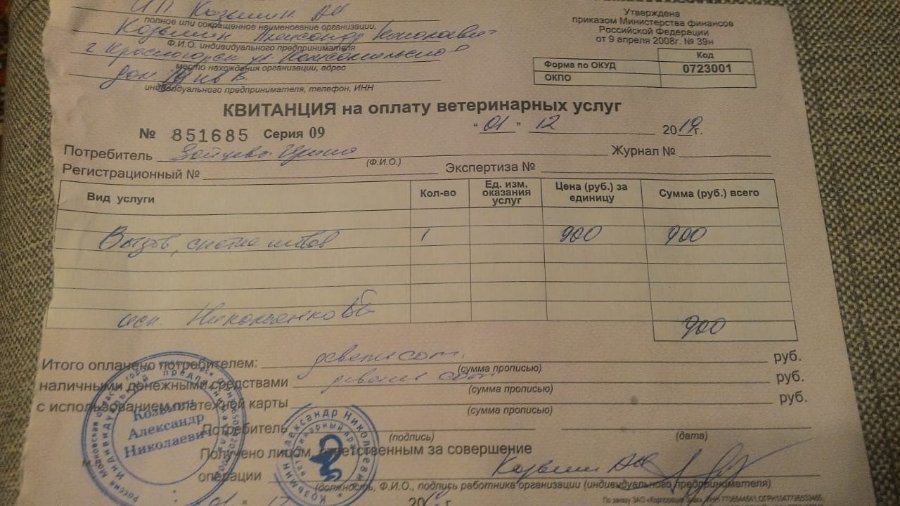 ИП Козьмин АН
полное или сокращенное наименование организации,
Козьмин Александр Николаевич
Ф.И.О. индивидуального предпринимателя
г. Красногорск
место нахождения организации, адрес
дом
индивидуального предпринимателя, телефон, ИНН
Утверждена
приказом Министерства финансов
Российской Федерации
от 9 апреля 2008г. № 39н
Код
Форма по ОКУД 0723001
ОКПО
КВИТАНЦИЯ на оплату ветеринарных услуг
№ 851685 Серия 09 "01" 12 2019г.
Потребитель Зайцева Ирина Журнал №
(Ф.И.О.)
Регистрационный № Экспертиза №
Вид услуги Кол-во Ед. изм. оказания услуг Цена (руб.) за единицу Сумма (руб.) всего
Вызов, снятие швов 1 900 900
исп. Никольенко
900
Итого оплачено потребителем: девятьсот руб.
(сумма прописью)
наличными денежными средствами девятьсот руб.
(сумма прописью)
с использованием платежной карты руб.
(сумма прописью)
Потребитель
(подпись) (дата)
Получено лицом, ответственным за совершение
операции Козьмин АН
(должность, Ф.И.О., подпись работника организации (индивидуального предпринимателя)
Козьмин
Александр
Николаевич